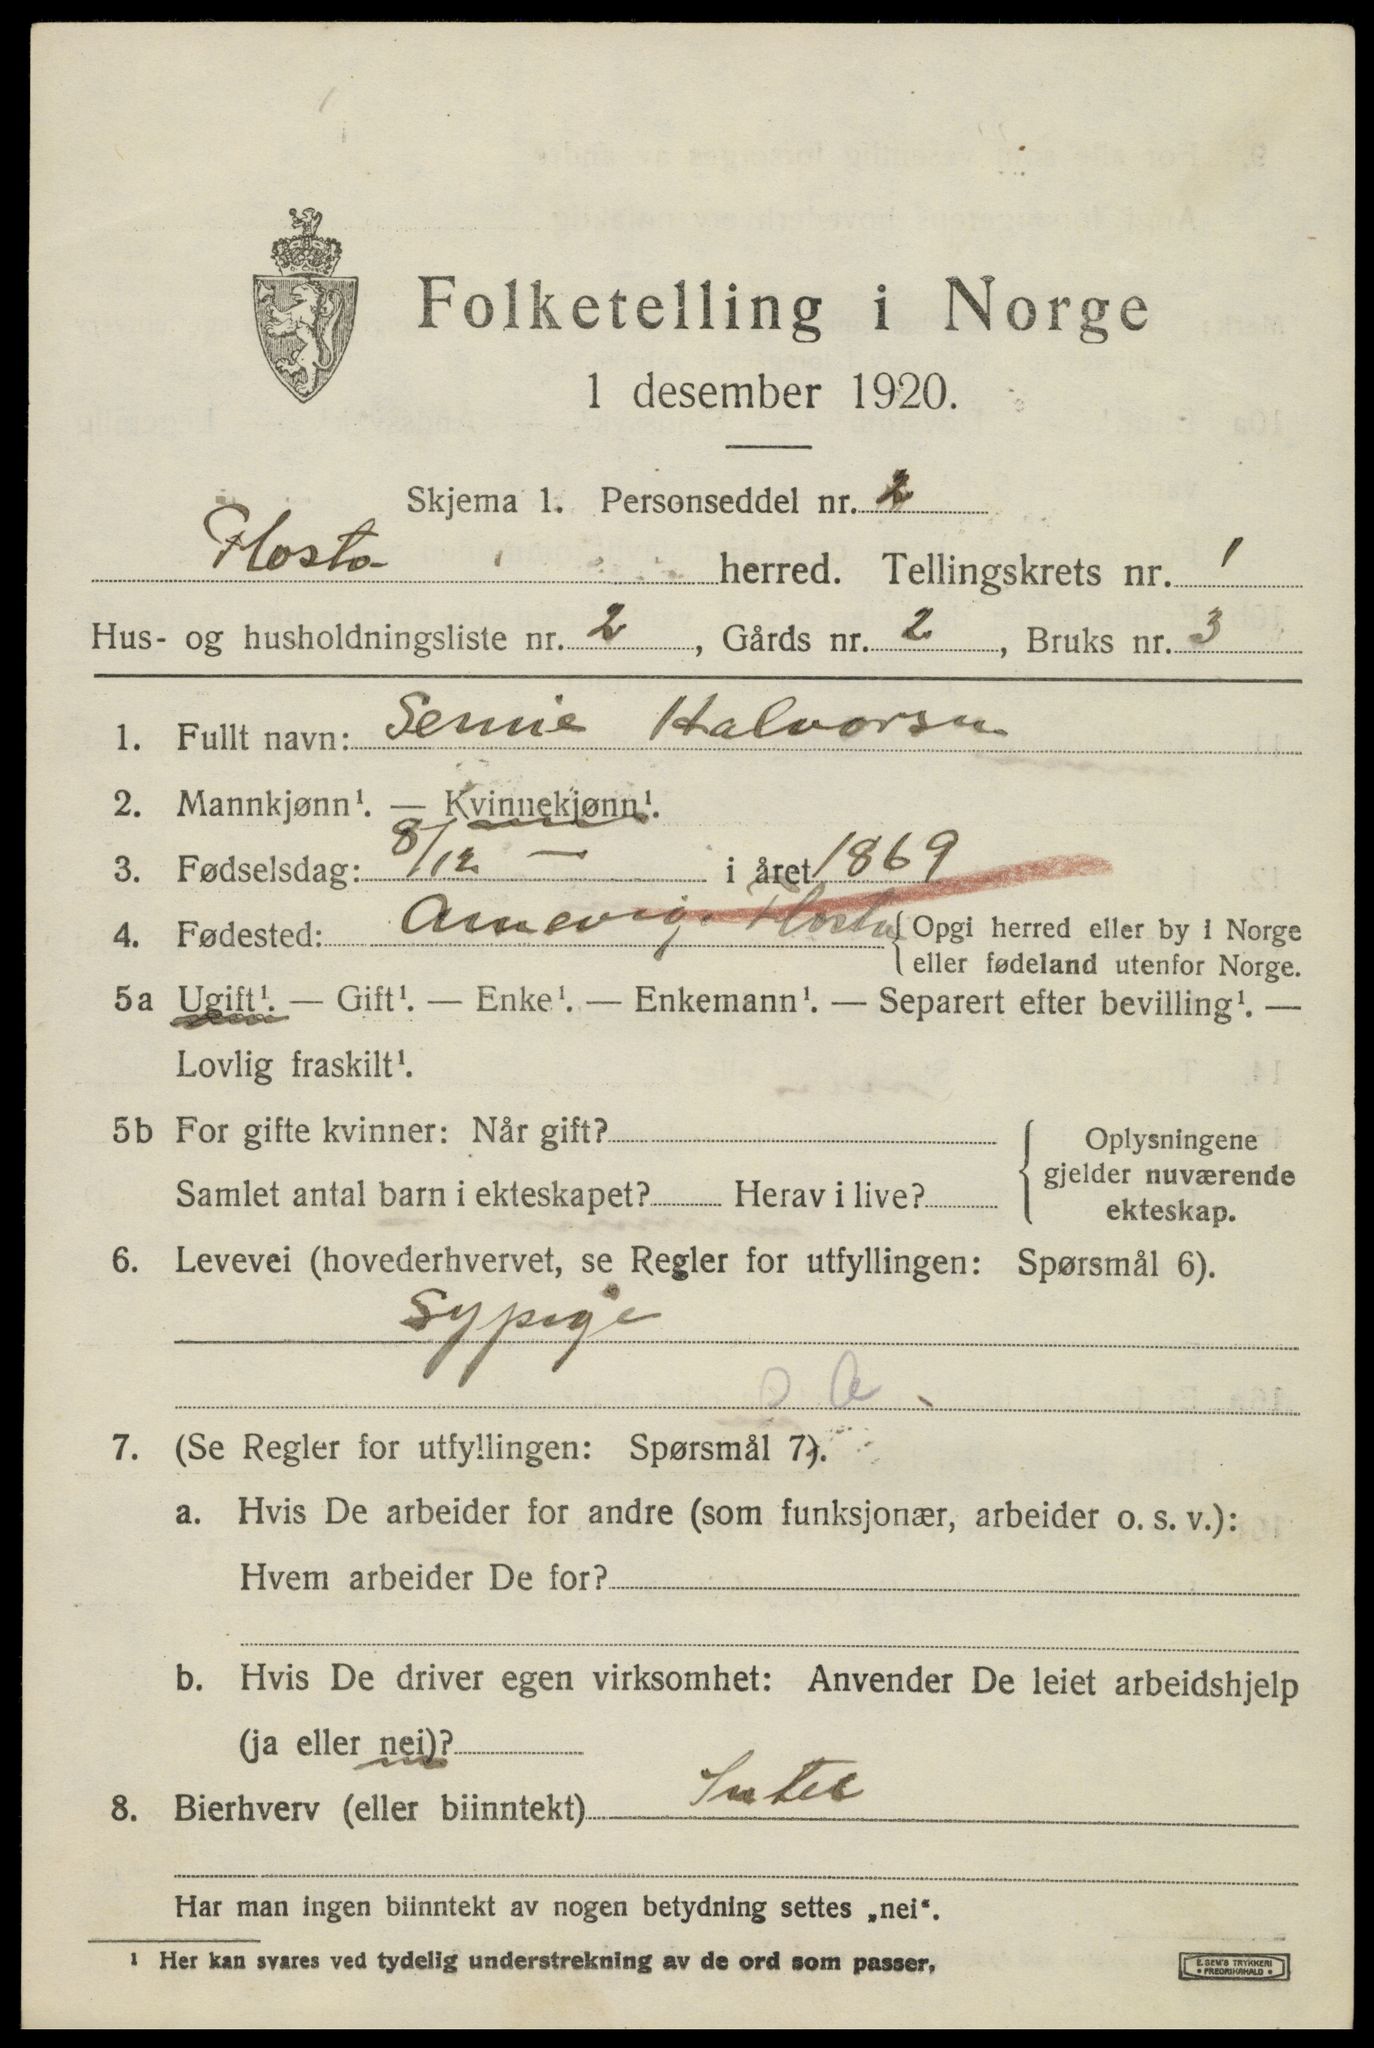 Folketelling i Norge
1 desember 1920.
Skjema 1. Personseddel nr. 2
Flosta herred. Tellingskrets nr. 1
Hus- og husholdningsliste nr. 2, Gårds nr. 2, Bruks nr. 3
1. Fullt navn: Semine Halvorsen
2. Mannkjønn¹. — Kvinnekjønn¹.
3. Fødselsdag: 8/12 — i året 1869
4. Fødested: Arnevig. Flosta { Opgi herred eller by i Norge
eller fødeland utenfor Norge.
5a Ugift¹. — Gift¹. — Enke¹. — Enkemann¹. — Separert efter bevilling¹. —
Lovlig fraskilt¹.
5b For gifte kvinner: Når gift?
Samlet antal barn i ekteskapet? Herav i live?
Oplysningene
gjelder nuværende
ekteskap.
6. Levevei (hovederhvervet, se Regler for utfyllingen: Spørsmål 6).
Sypige
7. (Se Regler for utfyllingen: Spørsmål 7).
a. Hvis De arbeider for andre (som funksjonær, arbeider o. s. v.):
Hvem arbeider De for?
b. Hvis De driver egen virksomhet: Anvender De leiet arbeidshjelp
(ja eller nei)?
8. Bierhverv (eller biinntekt) Intet
Har man ingen biinntekt av nogen betydning settes „nei“.
¹ Her kan svares ved tydelig understrekning av de ord som passer.
E. SEM'S TRYKKERI
• FREDRIKSHALD •